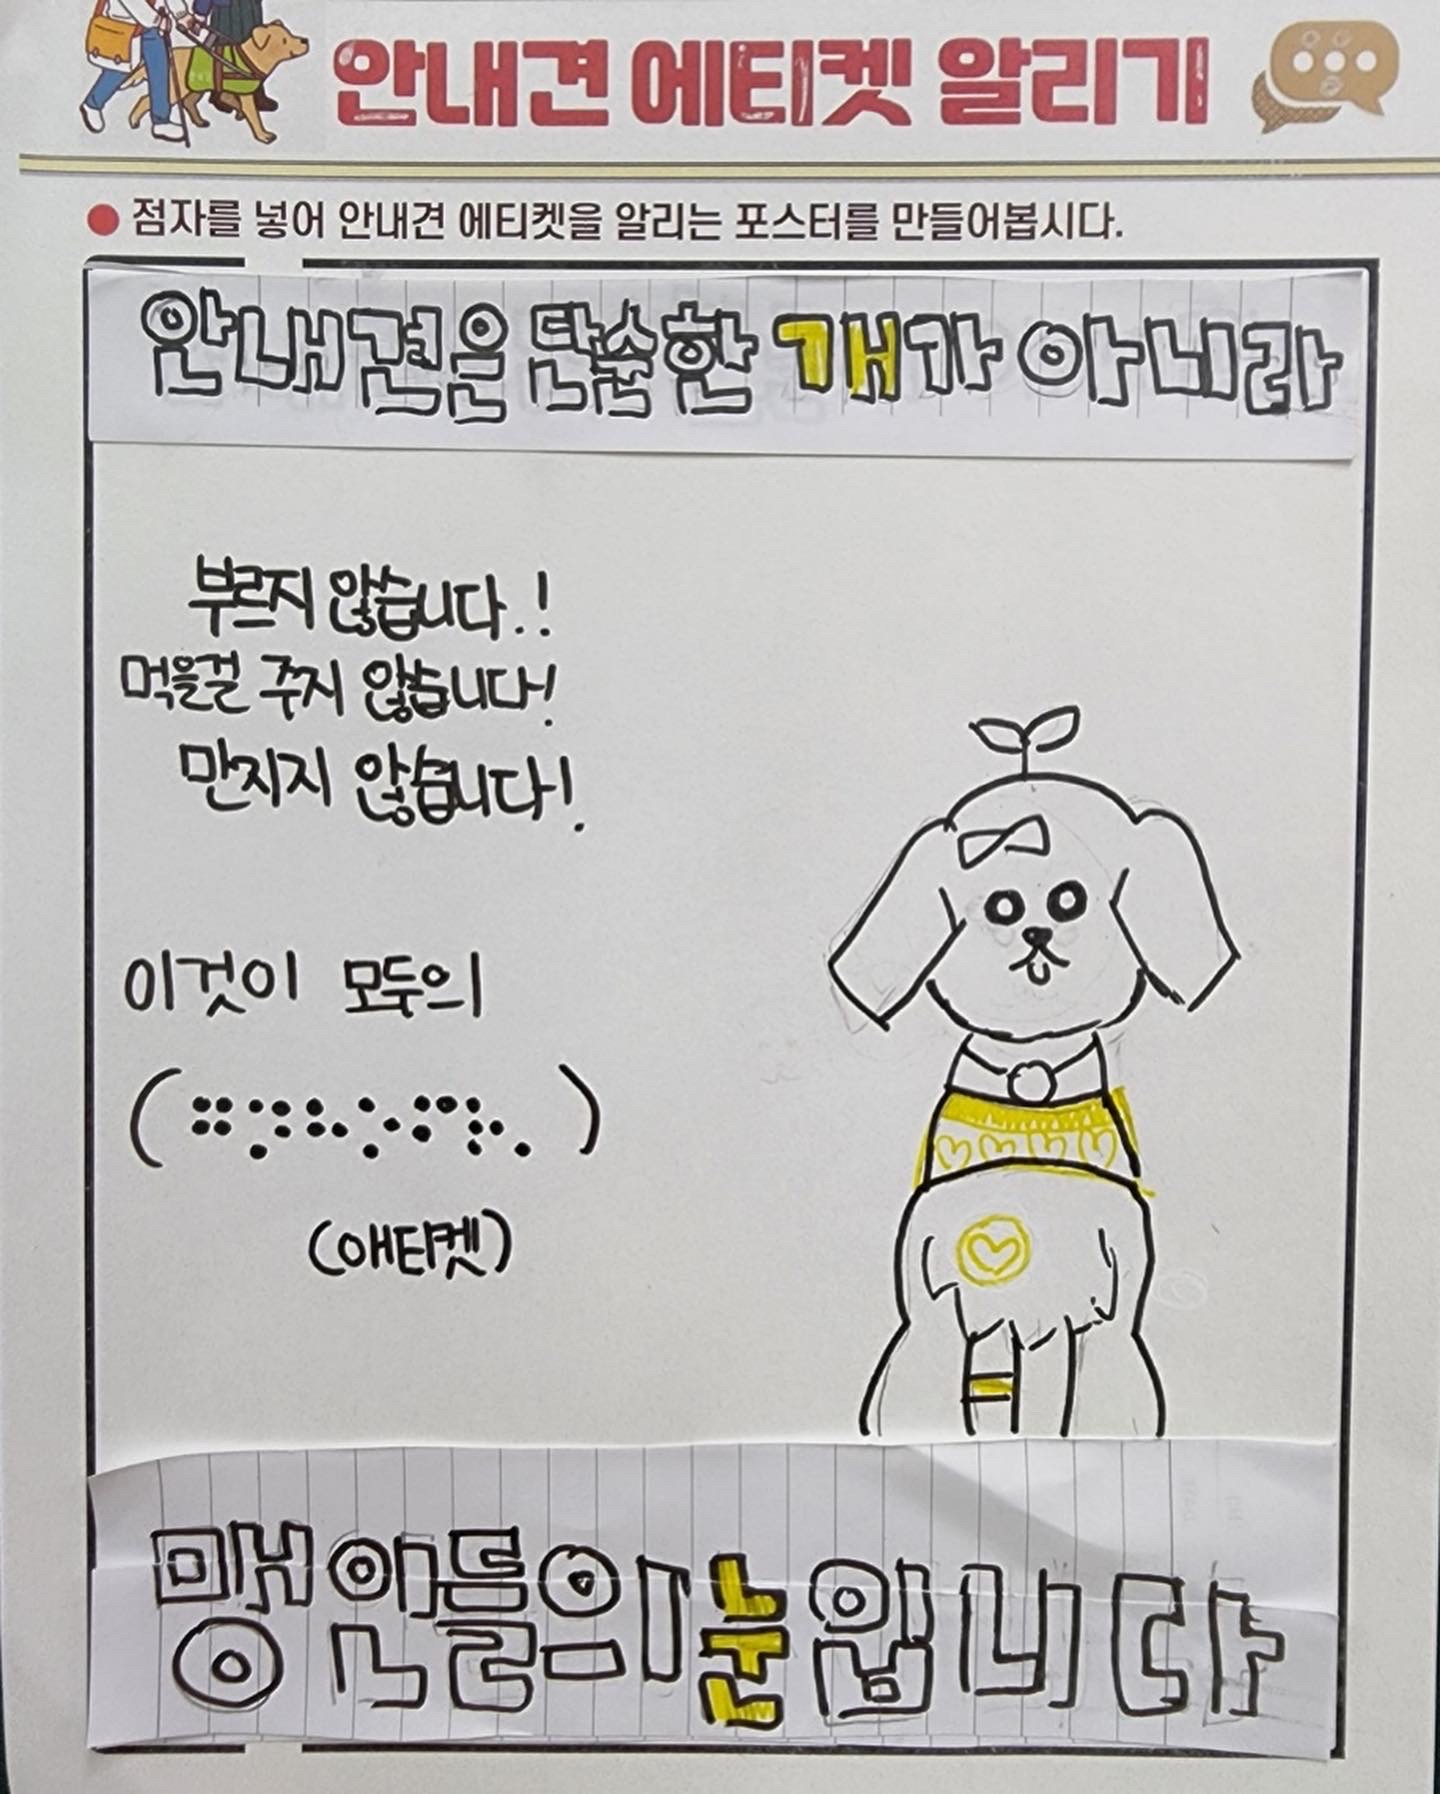 안내견 에티켓 알리기
● 점자를 넣어 안내견 에티켓을 알리는 포스터를 만들어봅시다.
안내견은 단순한 개가 아니라
부르지 않습니다.!
먹을걸 주지 않습니다!
만지지 않습니다!
이것이 모두의
(애티켓)
맹인들의 눈입니다